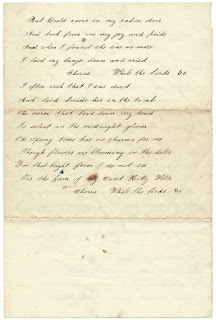 But Death came in my cabin door
And took from me my joy and pride
And when I found she was no more
I laid my banjo down and cried
Chorus While the birds &c
I often wish that I was dead
And laid beside her in the tomb
The sorrow that bows down my head
Is silent in the midnight gloom
The spring time has no charms for me
Though flowers are blooming in the dells
For that bright form I do not see
Tis the form of my sweet Kitty Wells
Chorus While the birds &c